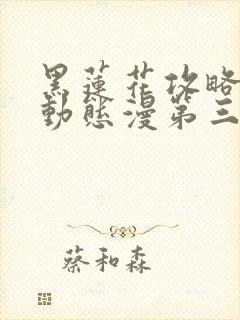 黑蓮花攻略
動態漫第三
蔡和森